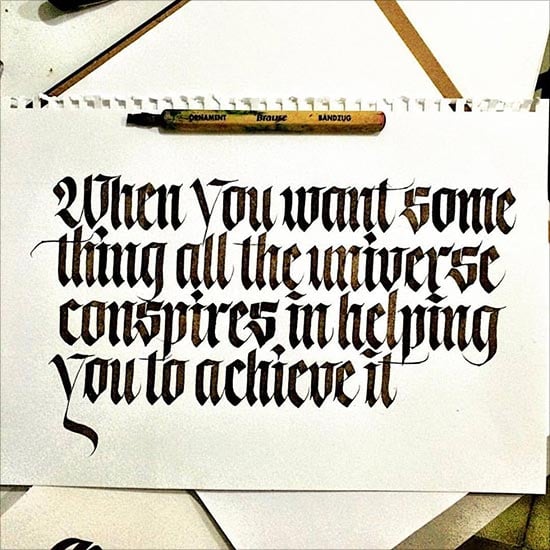 ORNAMENT Brause BANDZUG
When you want some
thing all the universe
conspires in helping
you to achieve it